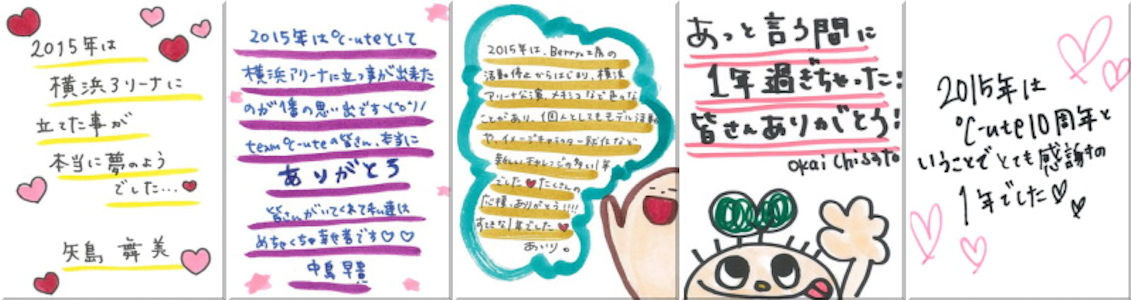 2015年は
横浜アリーナに
立てた事が
本当に夢のよう
でした…
矢島舞美
2015年は℃-uteとして
横浜アリーナに立つ事が出来た
のが1番の思い出です＼(^o^)／
team℃-uteの皆さん、本当に
ありがとう
皆さんがいてくれて私達は
めちゃくちゃ幸せ者です♡♡
中島早貴
2015年は、Berryz工房の
活動停止からはじまり、横浜
アリーナ公演、メキシコなど色々な
ことがあり、個人としてもモデル活動
や、イメージキャラクター就任など
新しいチャレンジの多い1年
でした♥たくさんの
応援、ありがとう!!!!
すてきな1年でした♥
あいり。
あっと言う間に
1年過ぎちゃった!
皆さんありがとう!
Okai Chisato
2015年は
℃-ute10周年と
いうことでとても感謝の
1年でした♡♡